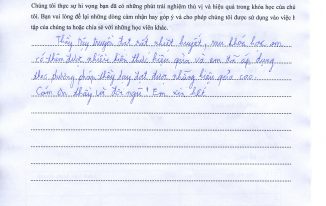 Chúng tôi thực sự hi vọng bạn đã có những phút trải nghiệm thú vị và hiệu quả trong khóa học của chú
tôi. Bạn vui lòng để lại những dòng cảm nhận hay góp ý và cho phép chúng tôi được sử dụng vào việc h
tập của chúng ta hoặc chia sẻ với những học viên khác.
Thầy Tùy truyền đạt rất nhiệt huyết, sau khóa học em
có thêm được nhiều kiến thức hiệu quả và em đã áp dụng
theo phương pháp thầy dạy đạt được những hiệu quả cao.
Cám ơn thầy và đội ngũ! Em xin hết